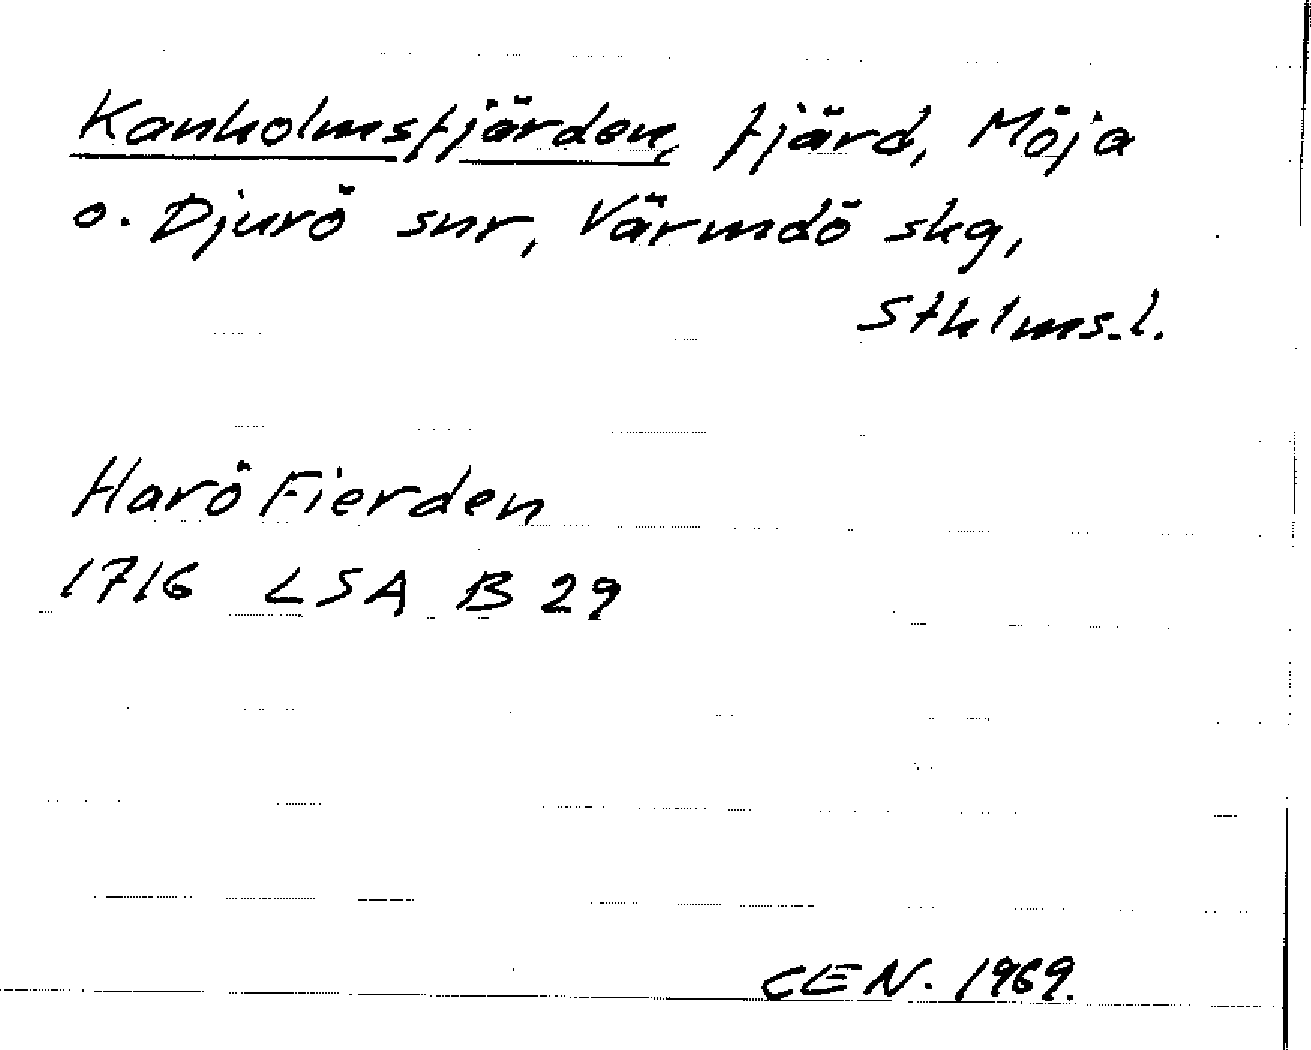 Kanholmsfjärden, fjärd, Möja
o. Djurö snr, Värmdö skg,
Sthlms.l.
Harö Fierden
1716 LSA B 29
CEN. 1969.